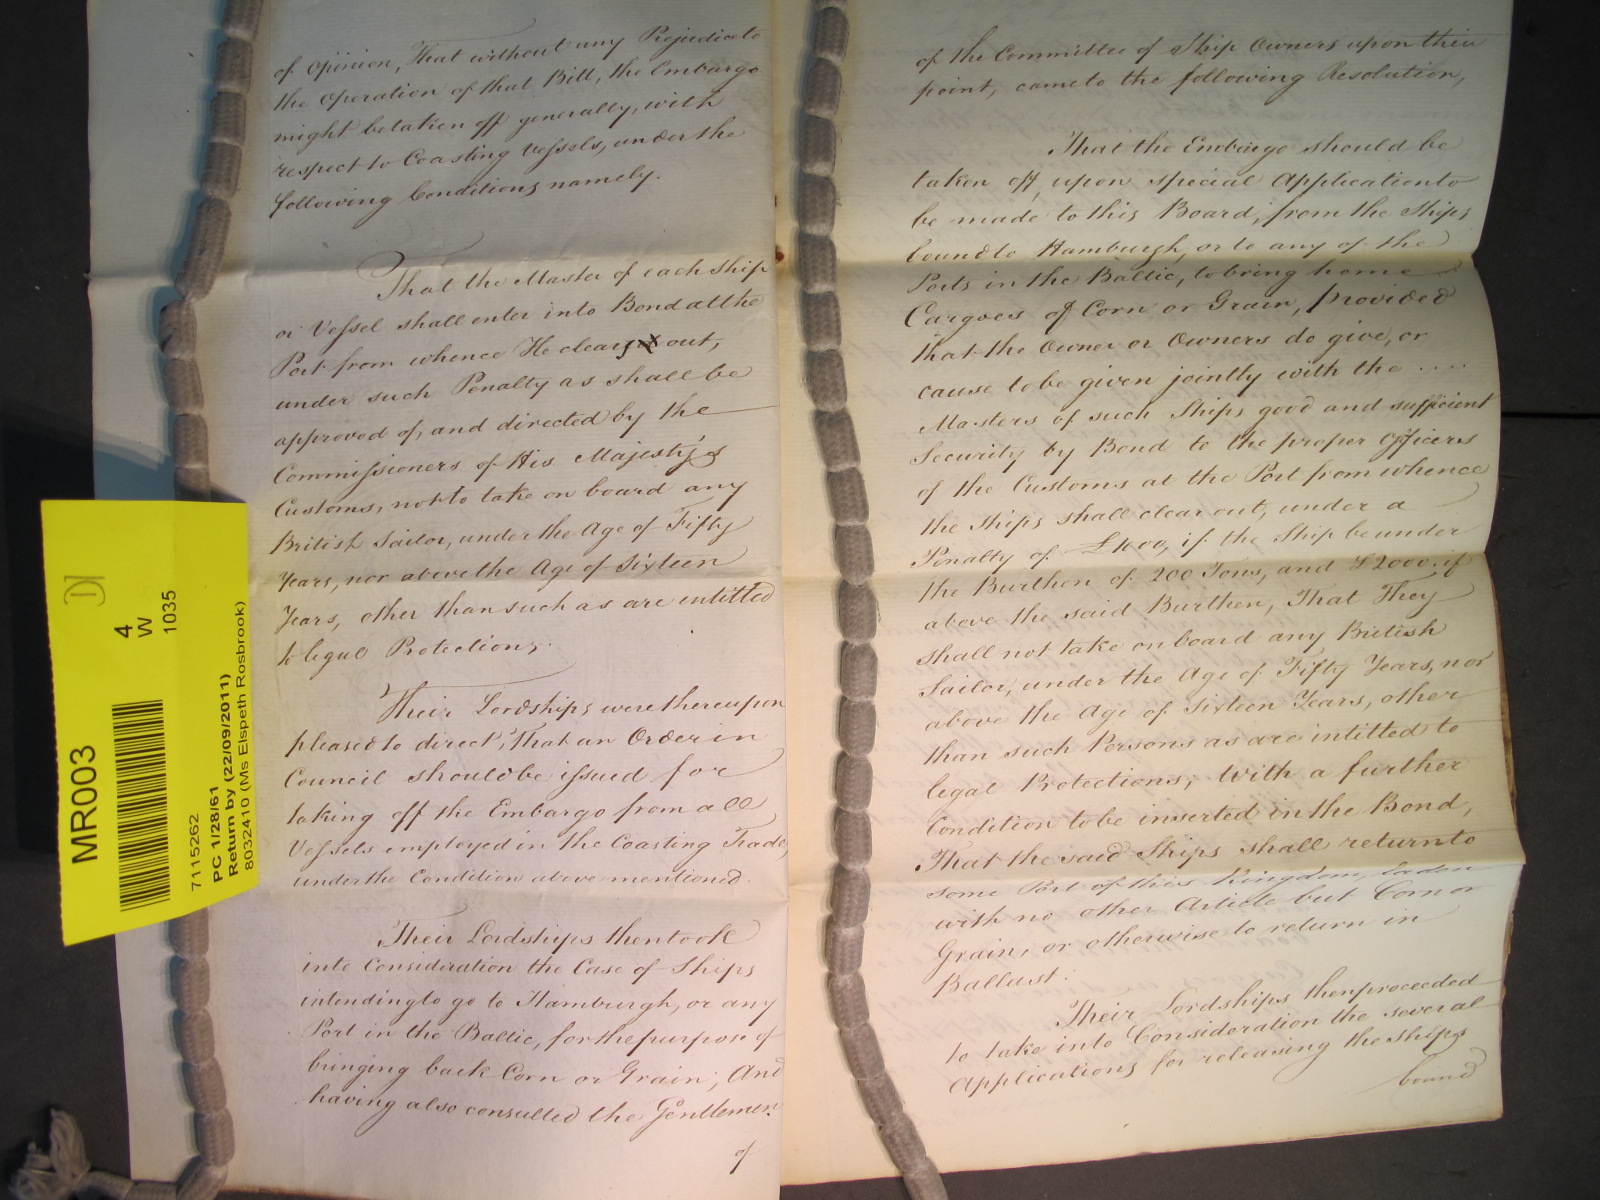 of Opinion, That without any Prejudice to
the Operation of that Bill, the Embargo
might be taken off generally, with
respect to Coasting Vessels, under the
following Conditions namely.
That the Master of each Ship
or Vessel shall enter into Bond at the
Port from whence He clears out,
under such Penalty as shall be
approved of, and directed by the
Commissioners of His Majesty's
Customs, not to take on board any
British Sailor, under the Age of Fifty
Years, nor above the Age of Sixteen
Years, other than such as are intitled
to legal Protections.
Their Lordships were thereupon
pleased to direct, That an Order in
Council should be issued for
taking off the Embargo from all
Vessels employed in the Coasting Trade,
under the Condition above mentioned.
Their Lordships then took
into Consideration the Case of Ships
intending to go to Hamburgh, or any
Port in the Baltic, for the purpose of
bringing back Corn or Grain; And
having also consulted the Gentlemen
of
of the Committee of Ship Owners upon this
point, came to the following Resolution,
That the Embargo should be
taken off, upon special Application to
be made to this Board, from the Ships
bound to Hamburgh, or to any of the
Ports in the Baltic, to bring home
Cargoes of Corn or Grain, provided
that the Owner or Owners do give, or
cause to be given jointly with the ....
Masters of such Ships good and sufficient
Security by Bond to the proper Officers
of the Customs at the Port from whence
the Ships shall clear out, under a
Penalty of £1000, if the Ship be under
the Burthen of 200 Tons, and £2000 if
above the said Burthen, That They
shall not take on board any British
Sailor, under the Age of Fifty Years, nor
above the Age of Sixteen Years, other
than such Persons as are intitled to
legal Protections; With a further
Condition to be inserted in the Bond,
That the said Ships shall return to
some Port of this Kingdom, laden
with no other Article but Corn or
Grain, or otherwise to return in
Ballast.
Their Lordships then proceeded
to take into Consideration the several
Applications for releasing the Ships
bound
MR003
4
W
1035
7115262
PC 1/28/61
Return by (22/09/2011)
8032410 (Ms Elspeth Rosbrook)